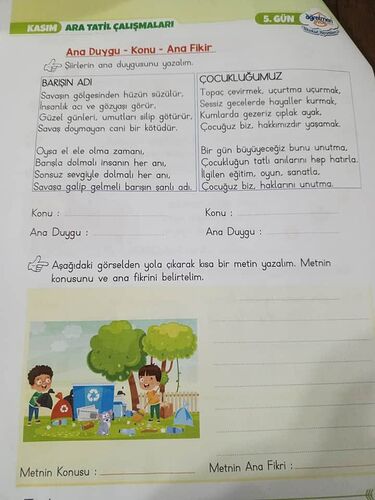 KASIM ARA TATİL ÇALIŞMALARI
5. GÜN
öğretmen
Ana Duygu - Konu - Ana Fikir
Şiirlerin ana duygusunu yazalım.
BARIŞIN ADI
Savaşın gölgesinden hüzün süzülür,
İnsanlık acı ve gözyaşı görür,
Güzel günleri, umutları silip götürür,
Savaş doymayan cani bir kötüdür.
Oysa el ele olma zamanı,
Barışla dolmalı insanın her anı,
Sonsuz sevgiyle dolmalı her anı,
Savaşa galip gelmeli barışın şanlı adı.
ÇOCUKLUĞUMUZ
Topaç çevirmek, uçurtma uçurmak,
Sessiz gecelerde hayaller kurmak,
Kumlarda gezeriz çıplak ayak,
Çocuğuz biz, hakkımızdır yaşamak.
Bir gün büyüyeceğiz bunu unutma,
Çocukluğun tatlı anılarını hep hatırla.
İlgilen eğitim, oyun, sanatla,
Çocuğuz biz, haklarını unutma.
Konu :
Ana Duygu :
Konu :
Ana Duygu :
Aşağıdaki görselden yola çıkarak kısa bir metin yazalım. Metnin
konusunu ve ana fikrini belirtelim.
Metnin Konusu :
Metnin Ana Fikri :